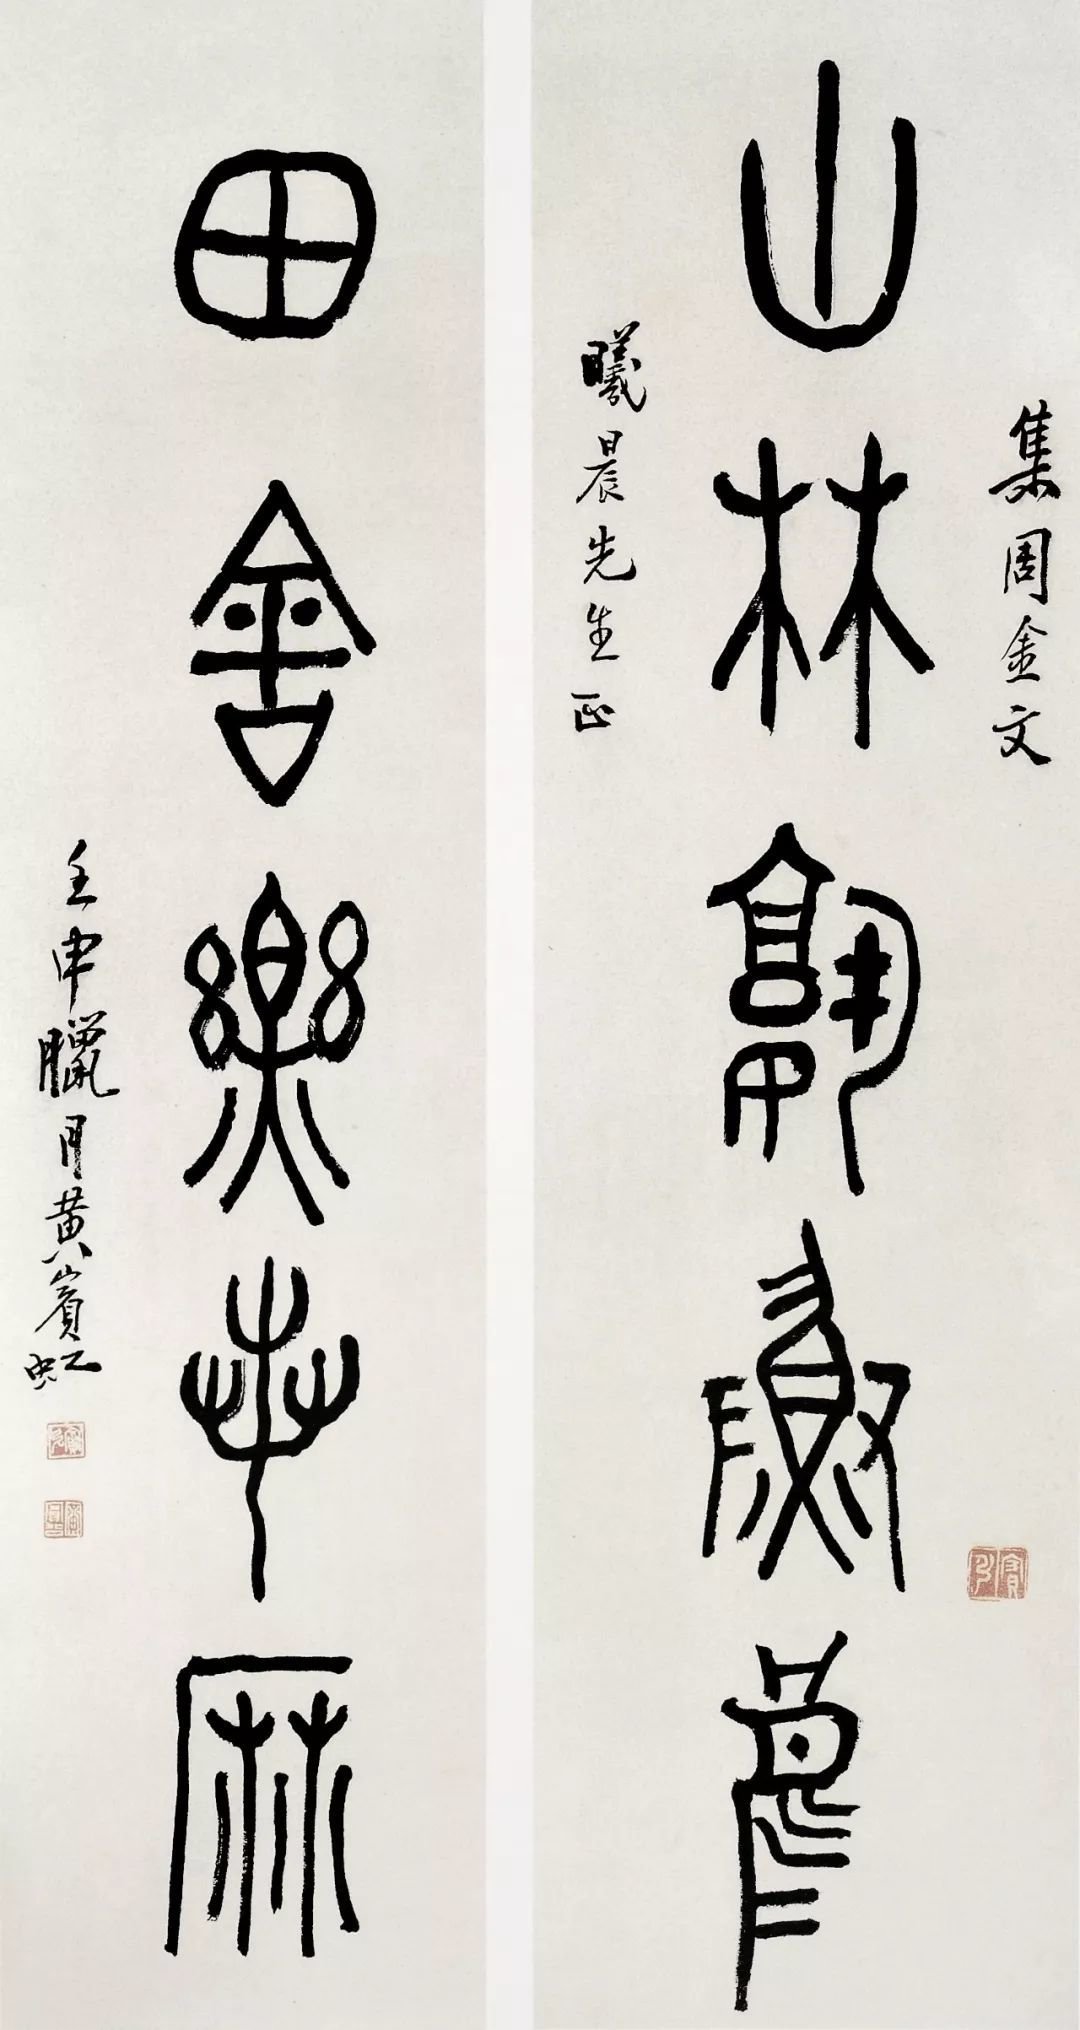 集周金文
山林孰
曦晨先生正
田舍樂桑麻
壬申臘月黃賓虹